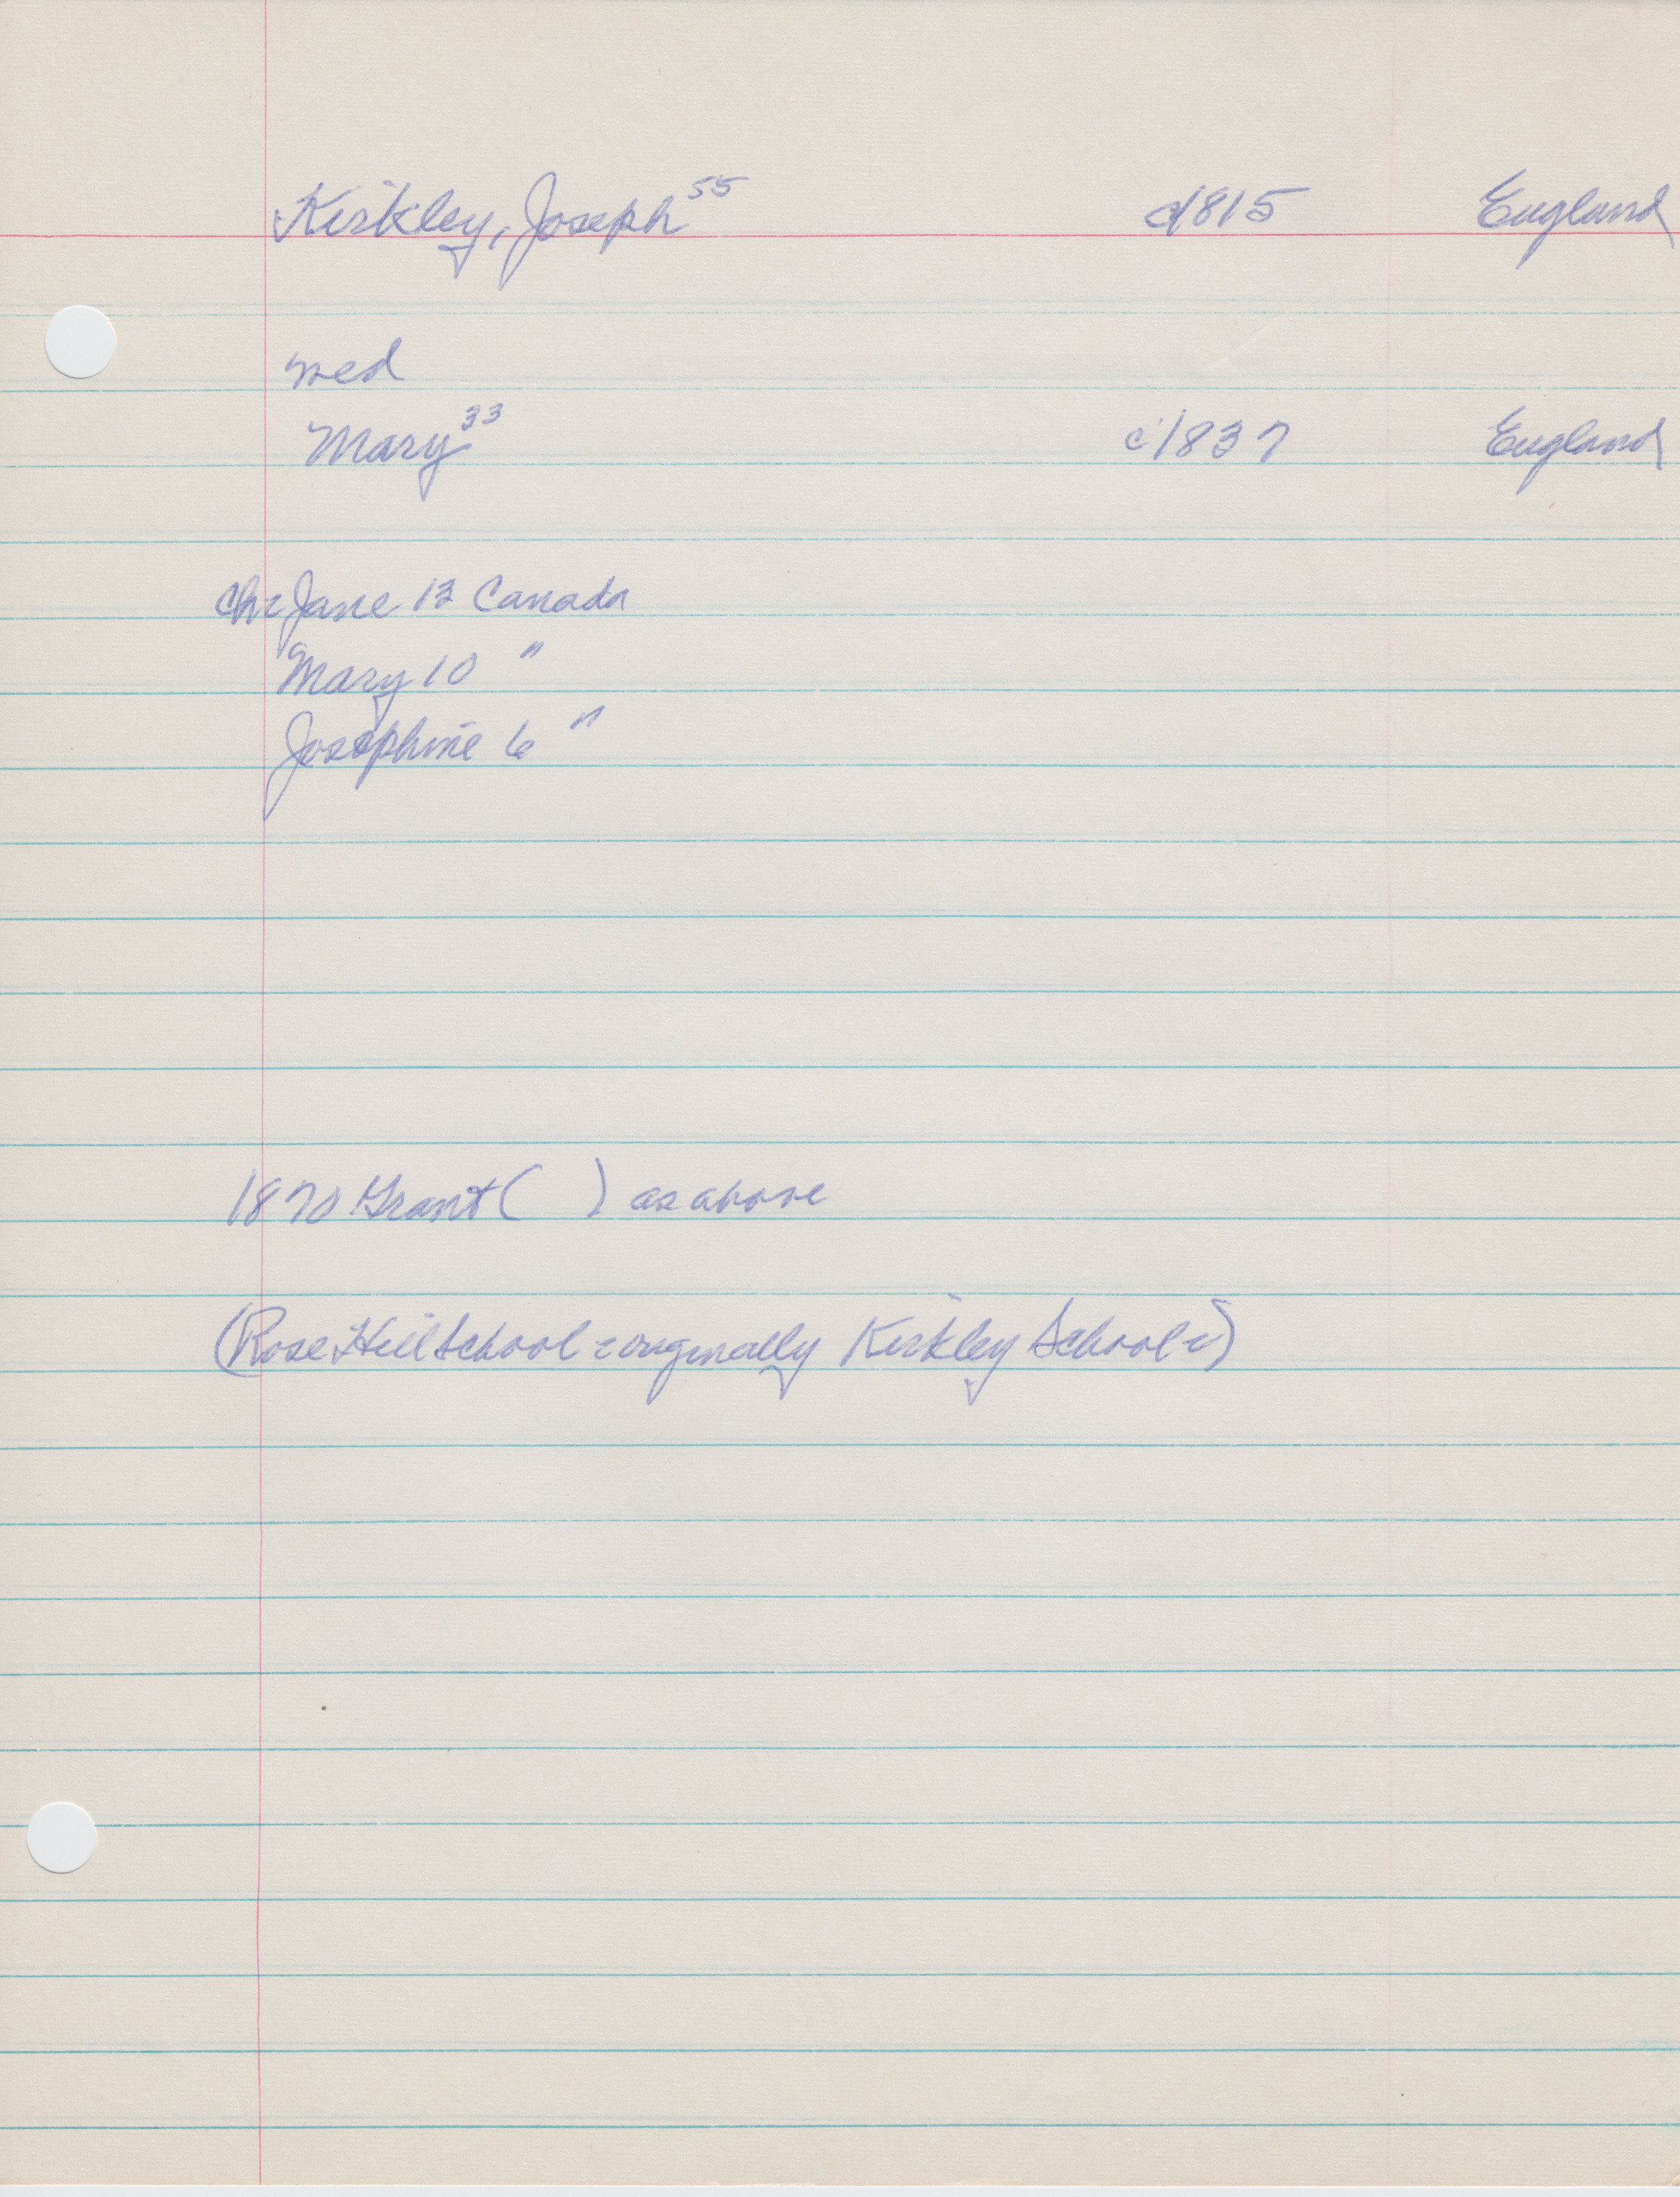 Kirkley, Joseph 55 c1815 England
med
Mary 33 c1837 England
Ch: Jane 13 Canada
Mary 10 "
Josephine 6 "
1870 Grant ( ) as above
(Rose Hill School = originally Kirkley School =)